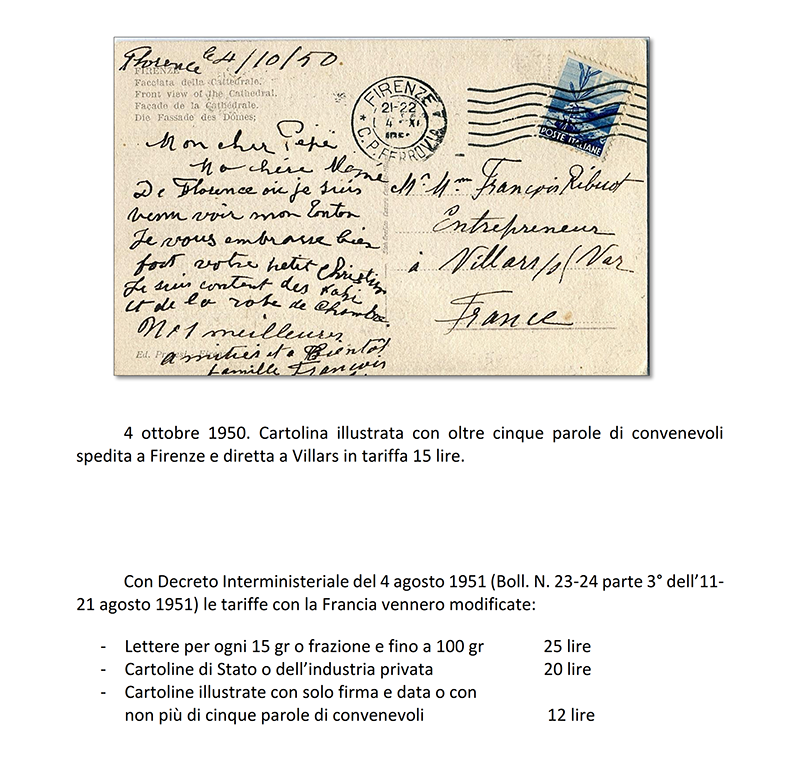 Florence le 4/10/50
FIRENZE
Facciata della Cattedrale.
Front view of the Cathedral.
Façade de la Cathédrale.
Die Fassade des Dômes;
FIRENZE
21-22
4 XI
C.P. FERROVIA
POSTE ITALIANE
Mon cher Pépé
Ma chère Mémé
De Florence où je suis
venu voir mon Tonton
Je vous embrasse bien
fort votre petit Christian
Je suis content des
et de la robe de chambre.
Nos meilleures
amitiés et a Bientot
famille François
Ed.
Mr Mme François Ribuot
Entrepreneur
à Villars s/ Var
France
4 ottobre 1950. Cartolina illustrata con oltre cinque parole di convenevoli
spedita a Firenze e diretta a Villars in tariffa 15 lire.
Con Decreto Interministeriale del 4 agosto 1951 (Boll. N. 23-24 parte 3° dell’11-
21 agosto 1951) le tariffe con la Francia vennero modificate:
- Lettere per ogni 15 gr o frazione e fino a 100 gr 25 lire
- Cartoline di Stato o dell’industria privata 20 lire
- Cartoline illustrate con solo firma e data o con
non più di cinque parole di convenevoli 12 lire